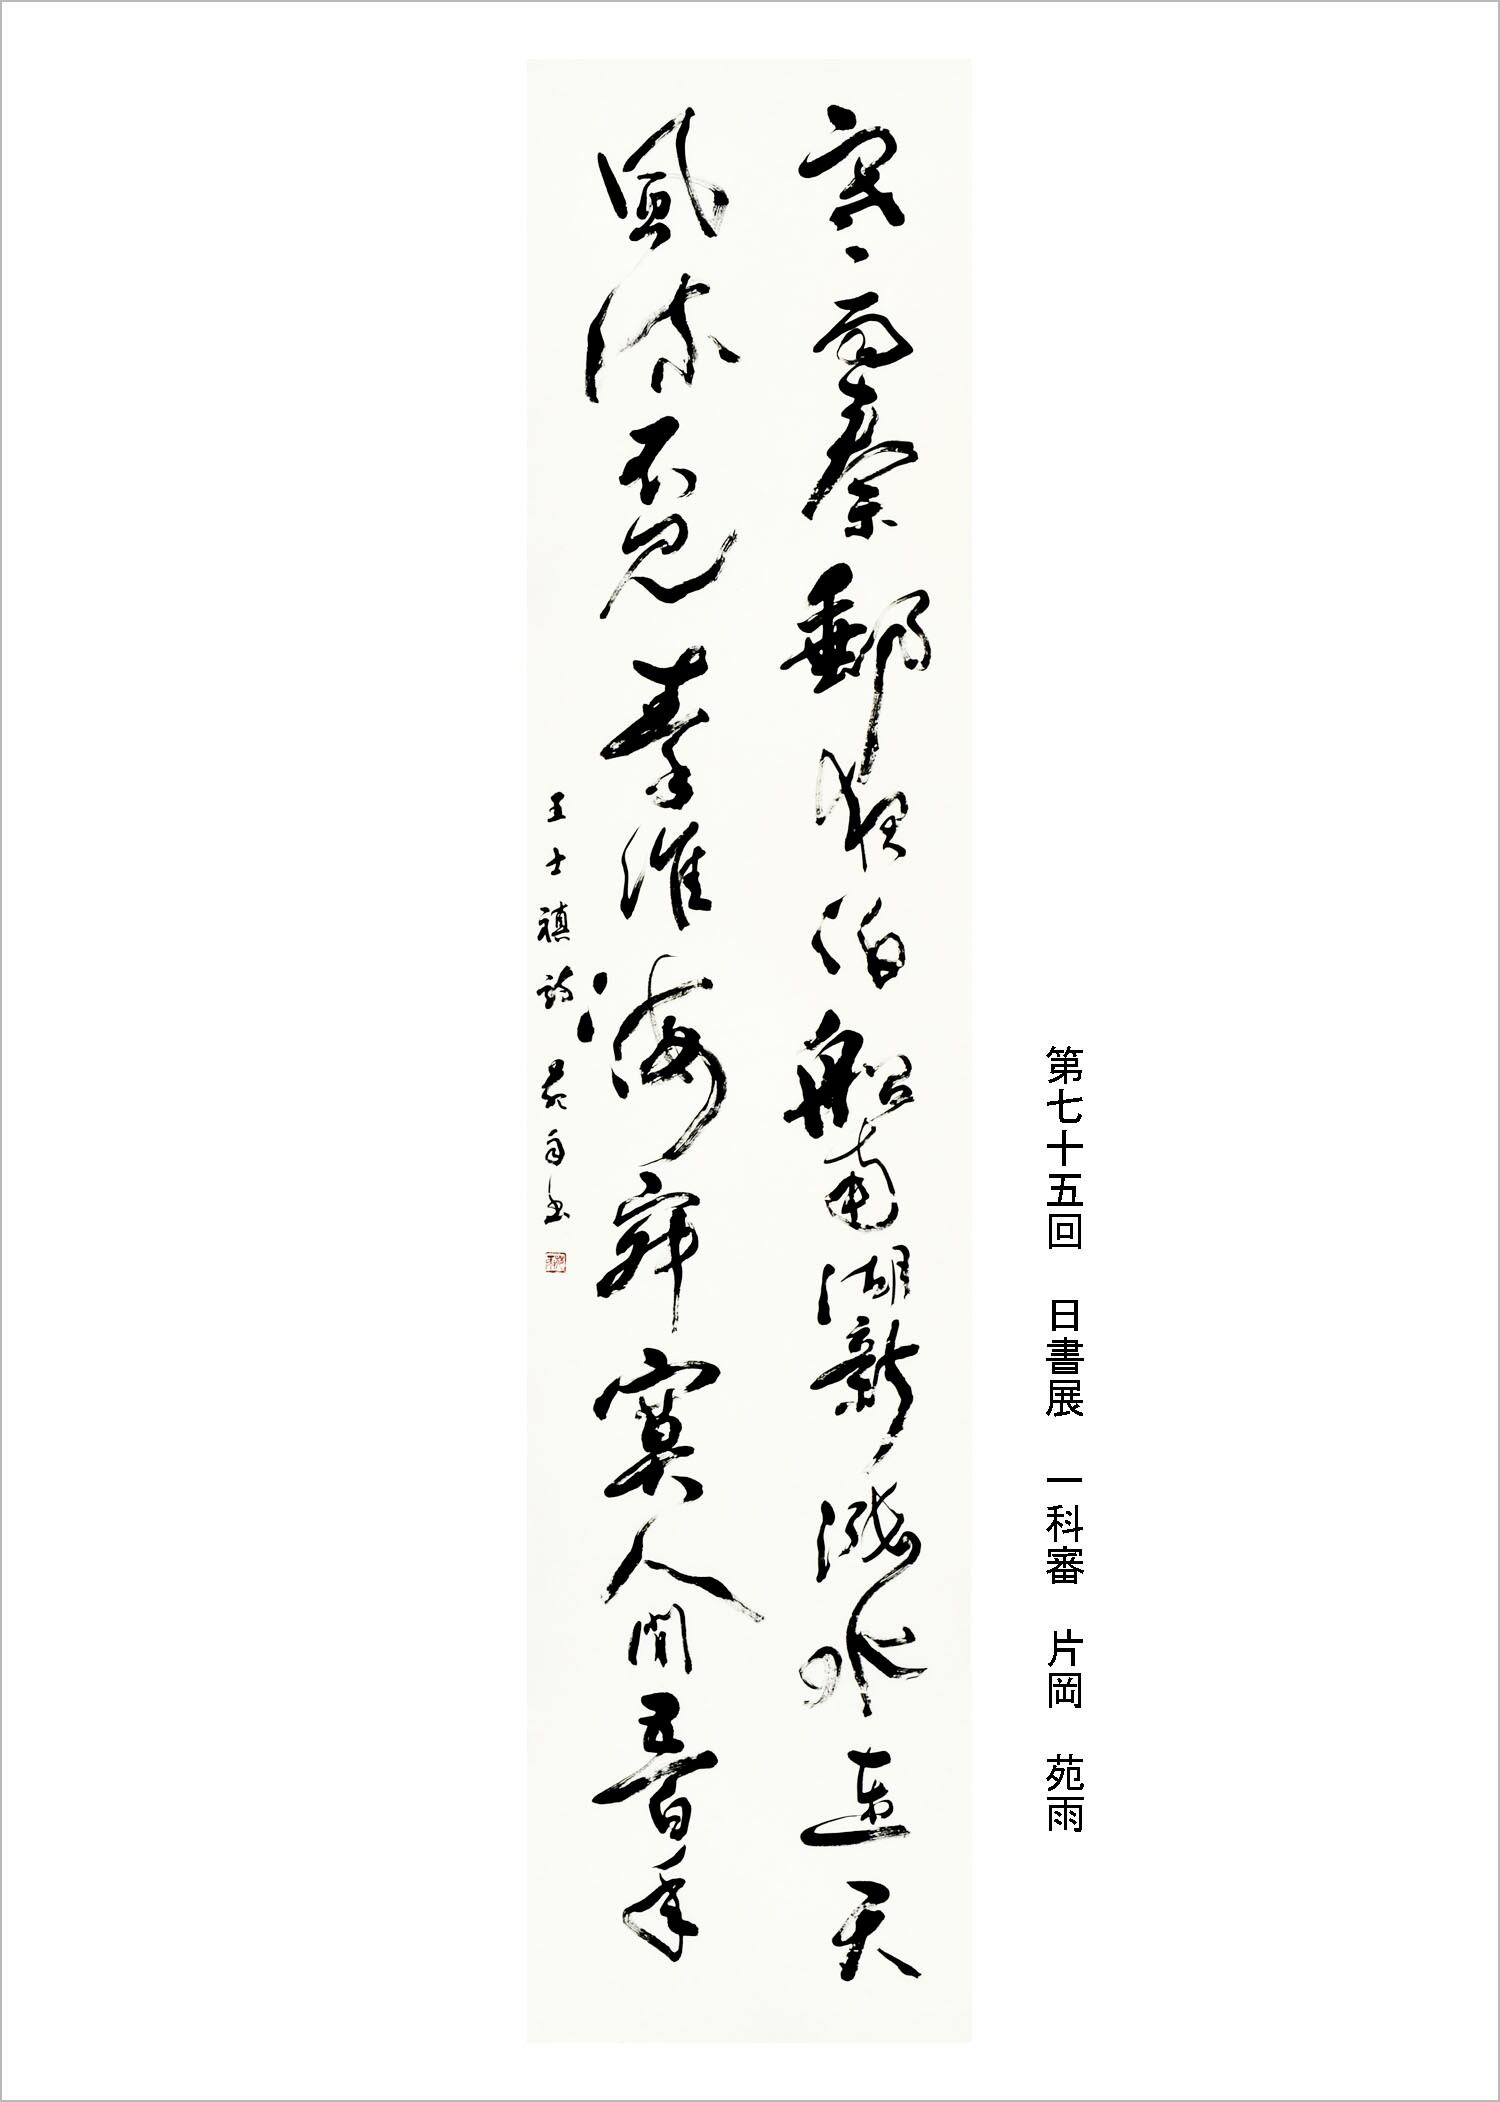 第七十五回 日書展 一科審 片岡 苑雨
寒雨秦郵夜泊船南湖新漲水連天
風流不見秦淮海寂寞人間五百年
王士禛詩 苑雨書